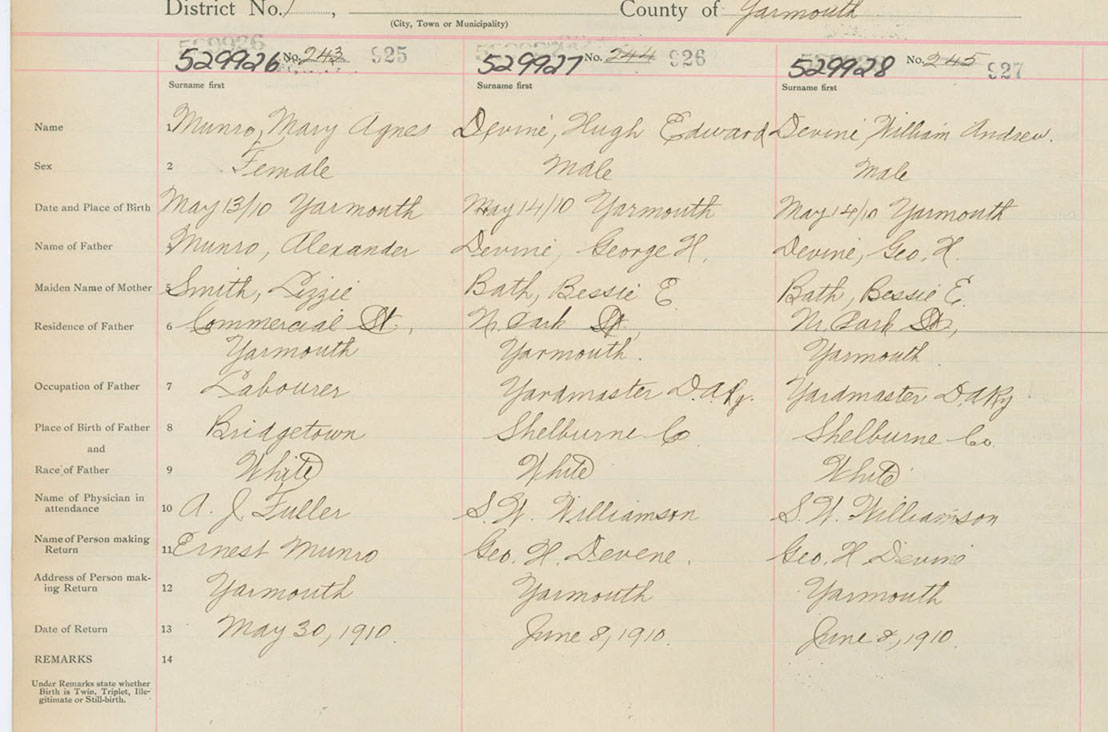 District No. 1 , County of Yarmouth
(City, Town or Municipality)
529926 No. 243 925 529927 No. 244 926 529928 No. 245 927
Surname first Surname first Surname first
Name 1 Munro, Mary Agnes Devine, Hugh Edward Devine, William Andrew.
Sex 2 Female Male Male
Date and Place of Birth May 13/10 Yarmouth May 14/10 Yarmouth May 14/10 Yarmouth
Name of Father Munro, Alexander Devine, George H. Devine, Geo. H.
Maiden Name of Mother 5 Smith, Lizzie Bath, Bessie E Bath, Bessie E.
Residence of Father 6 Commercial St, Nr. Park St, Nr. Park St,
Yarmouth Yarmouth. Yarmouth.
Occupation of Father 7 Labourer Yardmaster D.A.Ry. Yardmaster D.A.Ry
Place of Birth of Father 8 Bridgetown Shelburne Co Shelburne Co.
and
Race of Father 9 White White White
Name of Physician in
attendance 10 A. J. Fuller S. W. Williamson S. W. Williamson
Name of Person making
Return 11 Ernest Munro Geo. H. Devene. Geo. H Devine
Address of Person mak-
ing Return 12 Yarmouth Yarmouth Yarmouth
Date of Return 13 May 30, 1910. June 8, 1910. June 8, 1910.
REMARKS 14
Under Remarks state whether
Birth is Twin, Triplet, Ille-
gitimate or Still-birth.